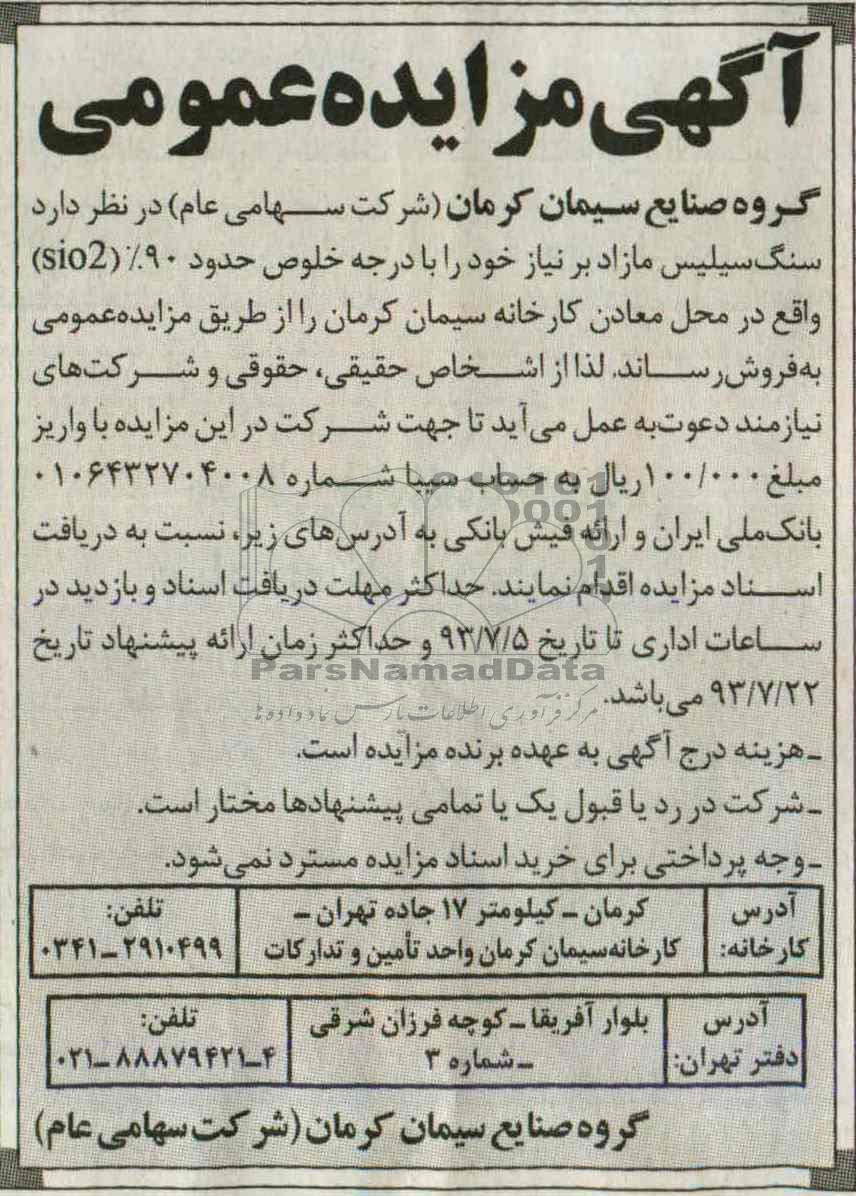 آگهی مزایده عمومی
گروه صنایع سیمان کرمان (شرکت سهامی عام) در نظر دارد
سنگ سیلیس مازاد بر نیاز خود را با درجه خلوص حدود ۹۰٪ (sio2)
واقع در محل معادن کارخانه سیمان کرمان را از طریق مزایده عمومی
به فروش رساند. لذا از اشخاص حقیقی، حقوقی و شرکت‌های
نیازمند دعوت به عمل می‌آید تا جهت شرکت در این مزایده با واریز
مبلغ ۱۰۰/۰۰۰ ریال به حساب سیبا شماره ۰۱۰۶۴۳۲۷۰۴۰۰۸
بانک ملی ایران و ارائه فیش بانکی به آدرس‌های زیر، نسبت به دریافت
اسناد مزایده اقدام نمایند. حداکثر مهلت دریافت اسناد و بازدید در
ساعات اداری تا تاریخ ۹۳/۷/۵ و حداکثر زمان ارائه پیشنهاد تاریخ
ParsNamadData
۹۳/۷/۲۲ می‌باشد.
مرکز فرآوری اطلاعات پارس نماد داده ها
ـ هزینه درج آگهی به عهده برنده مزایده است.
ـ شرکت در رد یا قبول یک یا تمامی پیشنهادها مختار است.
ـ وجه پرداختی برای خرید اسناد مزایده مسترد نمی‌شود.
آدرس کارخانه:
کرمان ـ کیلومتر ۱۷ جاده تهران ـ
کارخانه سیمان کرمان واحد تأمین و تدارکات
تلفن:
۰۳۴۱ـ۲۹۱۰۴۹۹
آدرس
دفتر تهران:
بلوار آفریقا ـ کوچه فرزان شرقی
ـ شماره ۳
تلفن:
۰۲۱ـ۸۸۸۷۹۴۲۱ـ۴
گروه صنایع سیمان کرمان (شرکت سهامی عام)